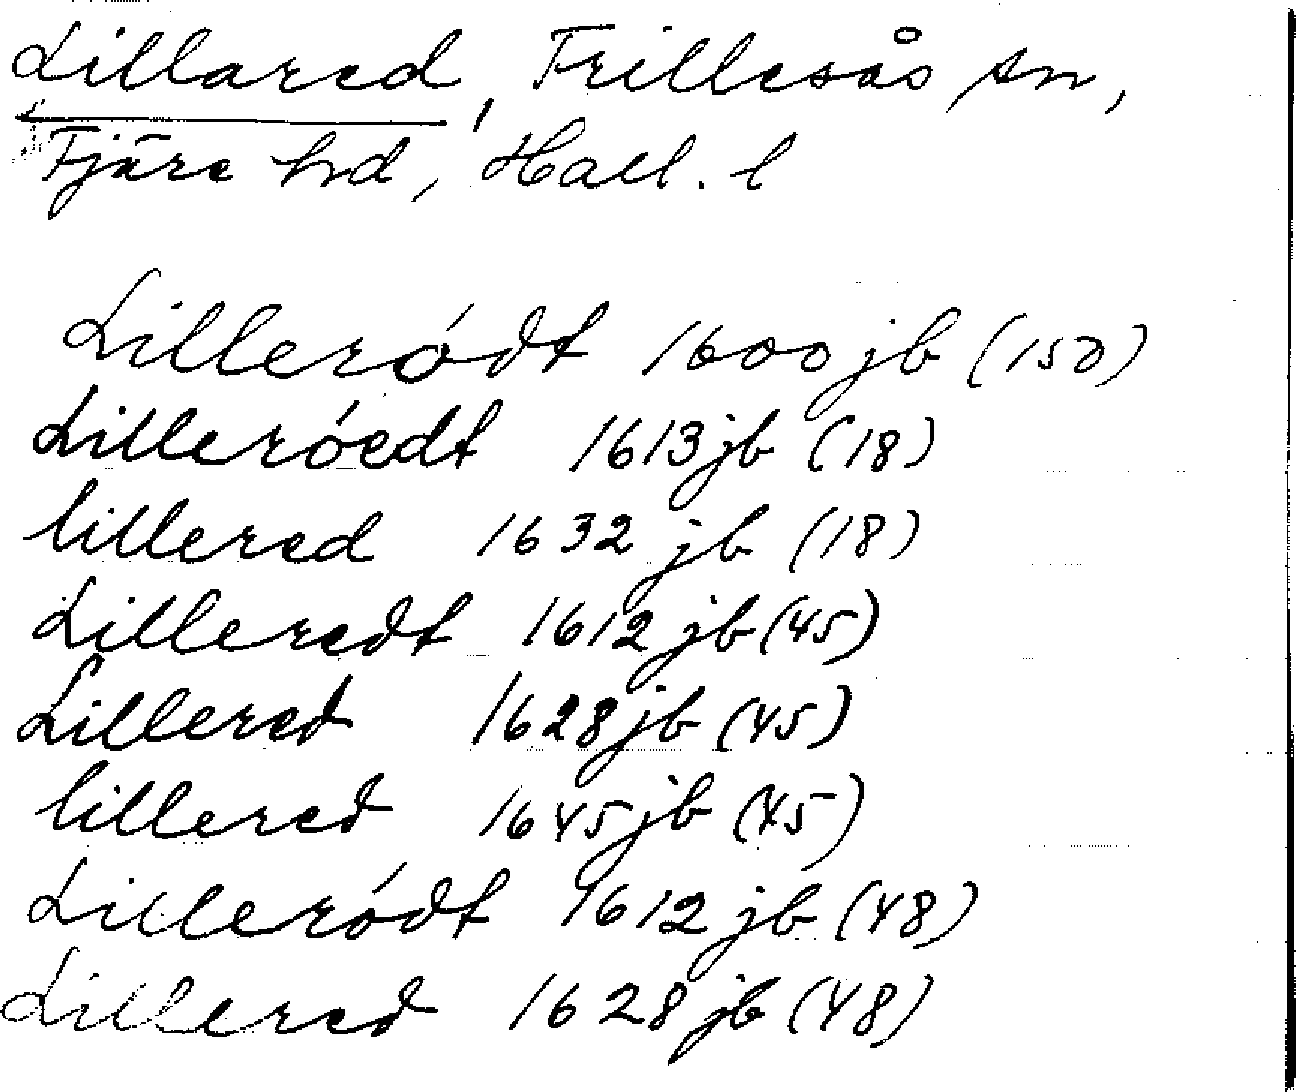 Lillared, Frillesås sn,
Fjäre hd, Hall. l
Lilleródt 1600 jb (150)
Lilleróedt 1613 jb (18)
lillered 1632 jb (18)
Lilleredt 1612 jb (45)
Lillered 1628 jb (45)
lillered 1645 jb (45)
Lilleródt 1612 jb (48)
Lillered 1628 jb (48)